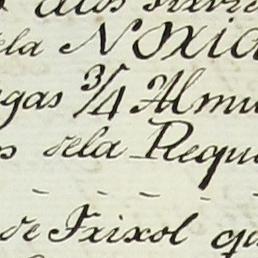 dela NOXIA
gas 3/4 Almu
s dela Requ
de Frixol qu